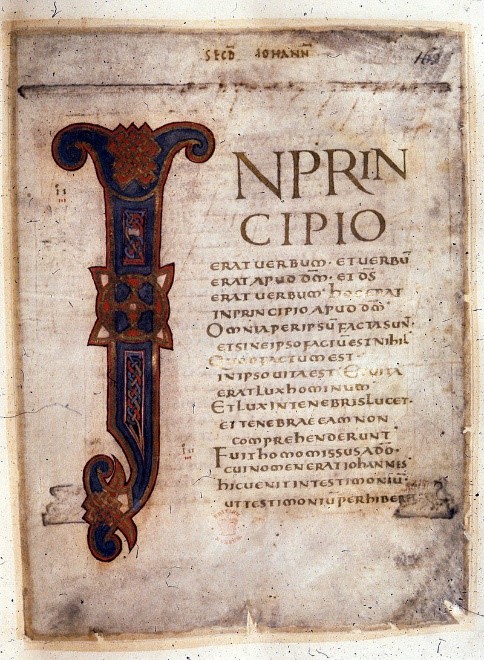 SECD̄ IOHANN̄
162
INPRIN
CIPIO
ERAT UERBUM· ET UERBŪ
ERAT APUD D̄M· ET D̄S
ERAT UERBUM· hOC ERAT
IN PRINCIPIO APUD D̄M
OMNIA PER IPSŪ FACTA SUN
ET SINE IPSO FACTŪ EST NIhIL
QUOD FACTUM EST·
IN IPSO UITA EST· ET UITA
ERAT LUX hOMINUM
ET LUX IN TENEBRIS LUCET·
ET TENEBRAE EAM NON
COMPREhENDERUNT
FUIT hOMO MISSUS A DŌ·
CUI NOMEN ERAT IOhANNES
hIC UENIT IN TESTIMONIŪ
UT TESTIMONIŪ PERhIBERE